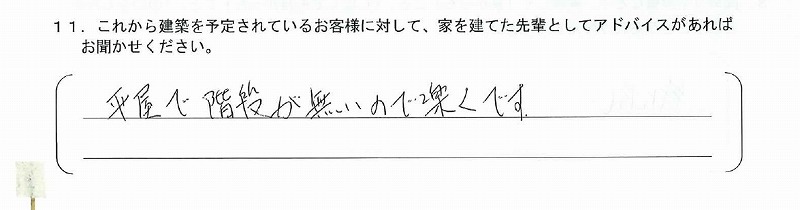 １１．これから建築を予定されているお客様に対して、家を建てた先輩としてアドバイスがあれば
お聞かせください。
平屋で階段が無いので楽くです。